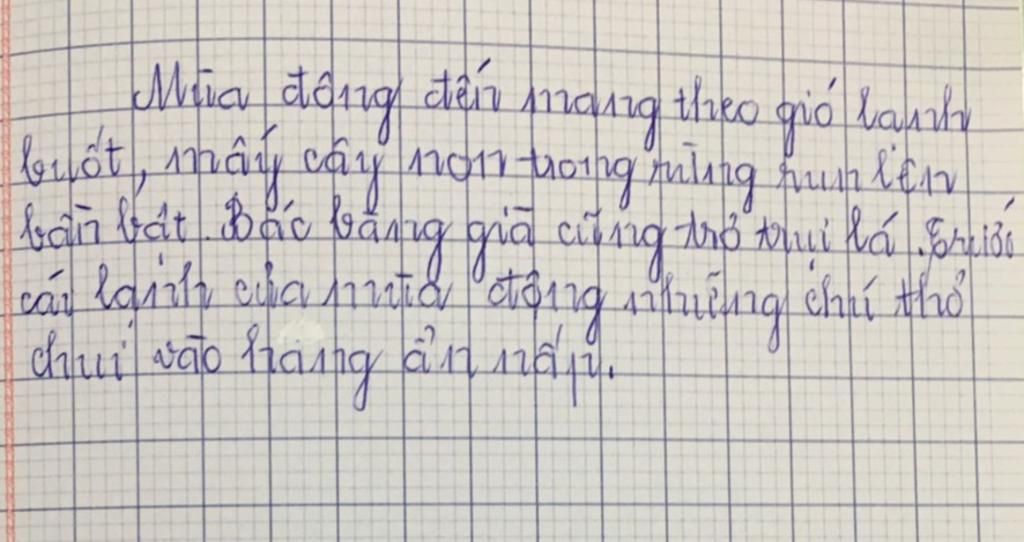 Mùa đông đến mang theo gió lạnh
buốt, mấy cây non trong rừng run lên
bần bật. Bác bàng già cũng trở trụi lá. Trước
cái lạnh của mùa đông những chú thỏ
chui vào hang ẩn nấp.